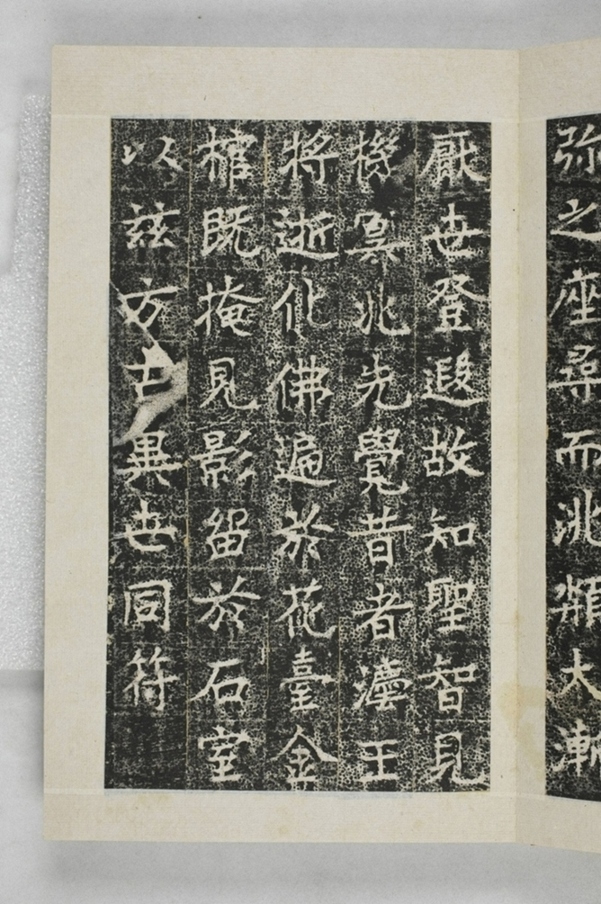 弥之座尋而洮頮大漸
厭世登遐故知聖智見
機冥兆先覺昔者瀍王
將逝化佛遍於花臺金
棺既掩見影留於石室
以茲方古異世同符